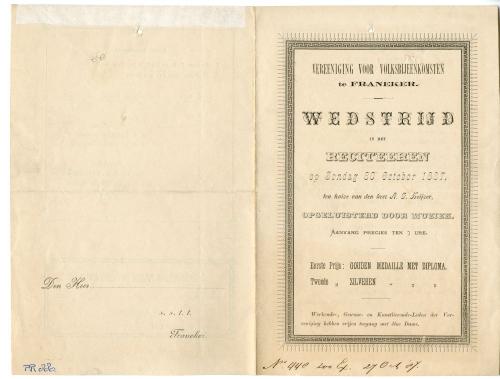 Den Heer
s. s. t. t.
Franeker.
VEREENIGING VOOR VOLKSBIJEENKOMSTEN
te FRANEKER.
WEDSTRIJD
IN HET
RECITEEREN
op Zondag 30 October 1887,
ten huize van den heer A. J.
OPGELUISTERD DOOR MUZIEK.
AANVANG PRECIES TEN 7 URE.
Eerste Prijs: GOUDEN MEDAILLE MET DIPLOMA.
Tweede „ ZILVEREN „ „ „
Werkende-, Gewone- en Kunstlievende-Leden der Ver-
eeniging hebben vrijen toegang met ééne Dame.
No. 440 Ex. 27 Oct 87.